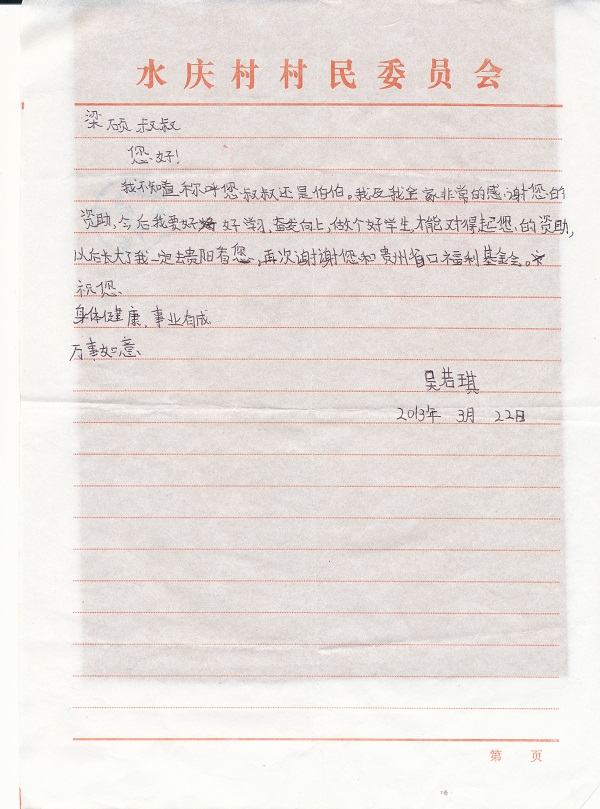 水庆村村民委员会
梁硕叔叔
您好!
我不知道称呼您叔叔还是伯伯。我及我全家非常的感谢您的
资助,今后我要好好学习,奋发向上,做个好学生,才能对得起您的资助,
以后长大了我一定去贵阳看您,再次谢谢您和贵州省口福利基金会。
祝您
身体健康,事业有成
万事如意
吴若琪
2013年 3月 22日
第 页